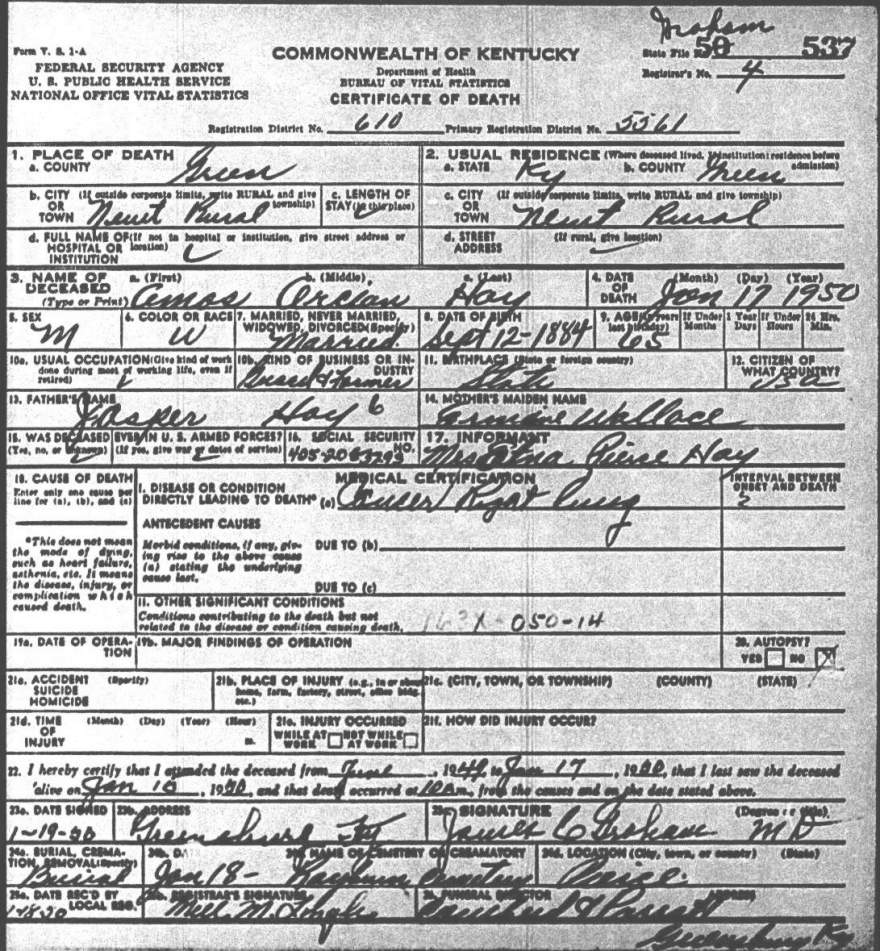 Graham
Form V. S. 1-A
FEDERAL SECURITY AGENCY
U. S. PUBLIC HEALTH SERVICE
NATIONAL OFFICE VITAL STATISTICS
COMMONWEALTH OF KENTUCKY
Department of Health
BUREAU OF VITAL STATISTICS
CERTIFICATE OF DEATH
State File No. 50 537
Registrar's No. 4
Registration District No. 610 Primary Registration District No. 5561
1. PLACE OF DEATH
a. COUNTY Green
2. USUAL RESIDENCE (Where deceased lived. If institution: residence before admission)
a. STATE Ky b. COUNTY Green
b. CITY OR TOWN (If outside corporate limits, write RURAL and give township) Newt Rural
c. LENGTH OF STAY (in this place)
c. CITY OR TOWN (If outside corporate limits, write RURAL and give township) Newt Rural
d. FULL NAME OF HOSPITAL OR INSTITUTION (If not in hospital or institution, give street address or location)
d. STREET ADDRESS (If rural, give location)
3. NAME OF DECEASED (Type or Print)
a. (First) Amos b. (Middle) c. (Last) Hay
4. DATE OF DEATH (Month) (Day) (Year) Jan 17 1950
5. SEX M
6. COLOR OR RACE W
7. MARRIED, NEVER MARRIED, WIDOWED, DIVORCED (Specify) Married
8. DATE OF BIRTH Sept 12-1884
9. AGE (In years last birthday) 65 If Under 1 Year Months Days If Under 24 Hrs. Hours Min.
10a. USUAL OCCUPATION (Give kind of work done during most of working life, even if retired)
10b. KIND OF BUSINESS OR INDUSTRY Farmer
11. BIRTHPLACE (State or foreign country) State
12. CITIZEN OF WHAT COUNTRY? USA
13. FATHER'S NAME Jasper Hay 6
14. MOTHER'S MAIDEN NAME Wallace
15. WAS DECEASED EVER IN U. S. ARMED FORCES? (Yes, no, or unknown) (If yes, give war or dates of service)
16. SOCIAL SECURITY NO. 405-20-
17. INFORMANT Mrs Pierce Hay
MEDICAL CERTIFICATION
18. CAUSE OF DEATH
Enter only one cause per line for (a), (b), and (c)
I. DISEASE OR CONDITION DIRECTLY LEADING TO DEATH* (a) Cancer Right Lung
INTERVAL BETWEEN ONSET AND DEATH
ANTECEDENT CAUSES
Morbid conditions, if any, giving rise to the above cause (a) stating the underlying cause last.
DUE TO (b)
DUE TO (c)
*This does not mean the mode of dying, such as heart failure, asthenia, etc. It means the disease, injury, or complication which caused death.
II. OTHER SIGNIFICANT CONDITIONS
Conditions contributing to the death but not related to the disease or condition causing death. 163X-050-14
19a. DATE OF OPERATION
19b. MAJOR FINDINGS OF OPERATION
20. AUTOPSY?
YES NO X
21a. ACCIDENT SUICIDE HOMICIDE (Specify)
21b. PLACE OF INJURY (e.g., in or about home, farm, factory, street, office bldg. etc.)
21c. (CITY, TOWN, OR TOWNSHIP) (COUNTY) (STATE)
21d. TIME OF INJURY (Month) (Day) (Year) (Hour) m.
21e. INJURY OCCURRED
WHILE AT WORK NOT WHILE AT WORK
21f. HOW DID INJURY OCCUR?
22. I hereby certify that I attended the deceased from June, 1949, to Jan 17, 1950, that I last saw the deceased
alive on Jan 1950, and that death occurred at m., from the causes and on the date stated above.
23a. DATE SIGNED 1-19-50
23b. ADDRESS Greensburg Ky
23c. SIGNATURE James C Graham MD (Degree or title)
24a. BURIAL, CREMATION, REMOVAL (Specify) Burial
24b. DATE Jan 18-
24c. NAME OF CEMETERY OR CREMATORY Cemetery
24d. LOCATION (City, town, or county) (State)
25a. DATE REC'D BY LOCAL REG.
25b. REGISTRAR'S SIGNATURE
26. FUNERAL DIRECTOR ADDRESS
Greensburg Ky